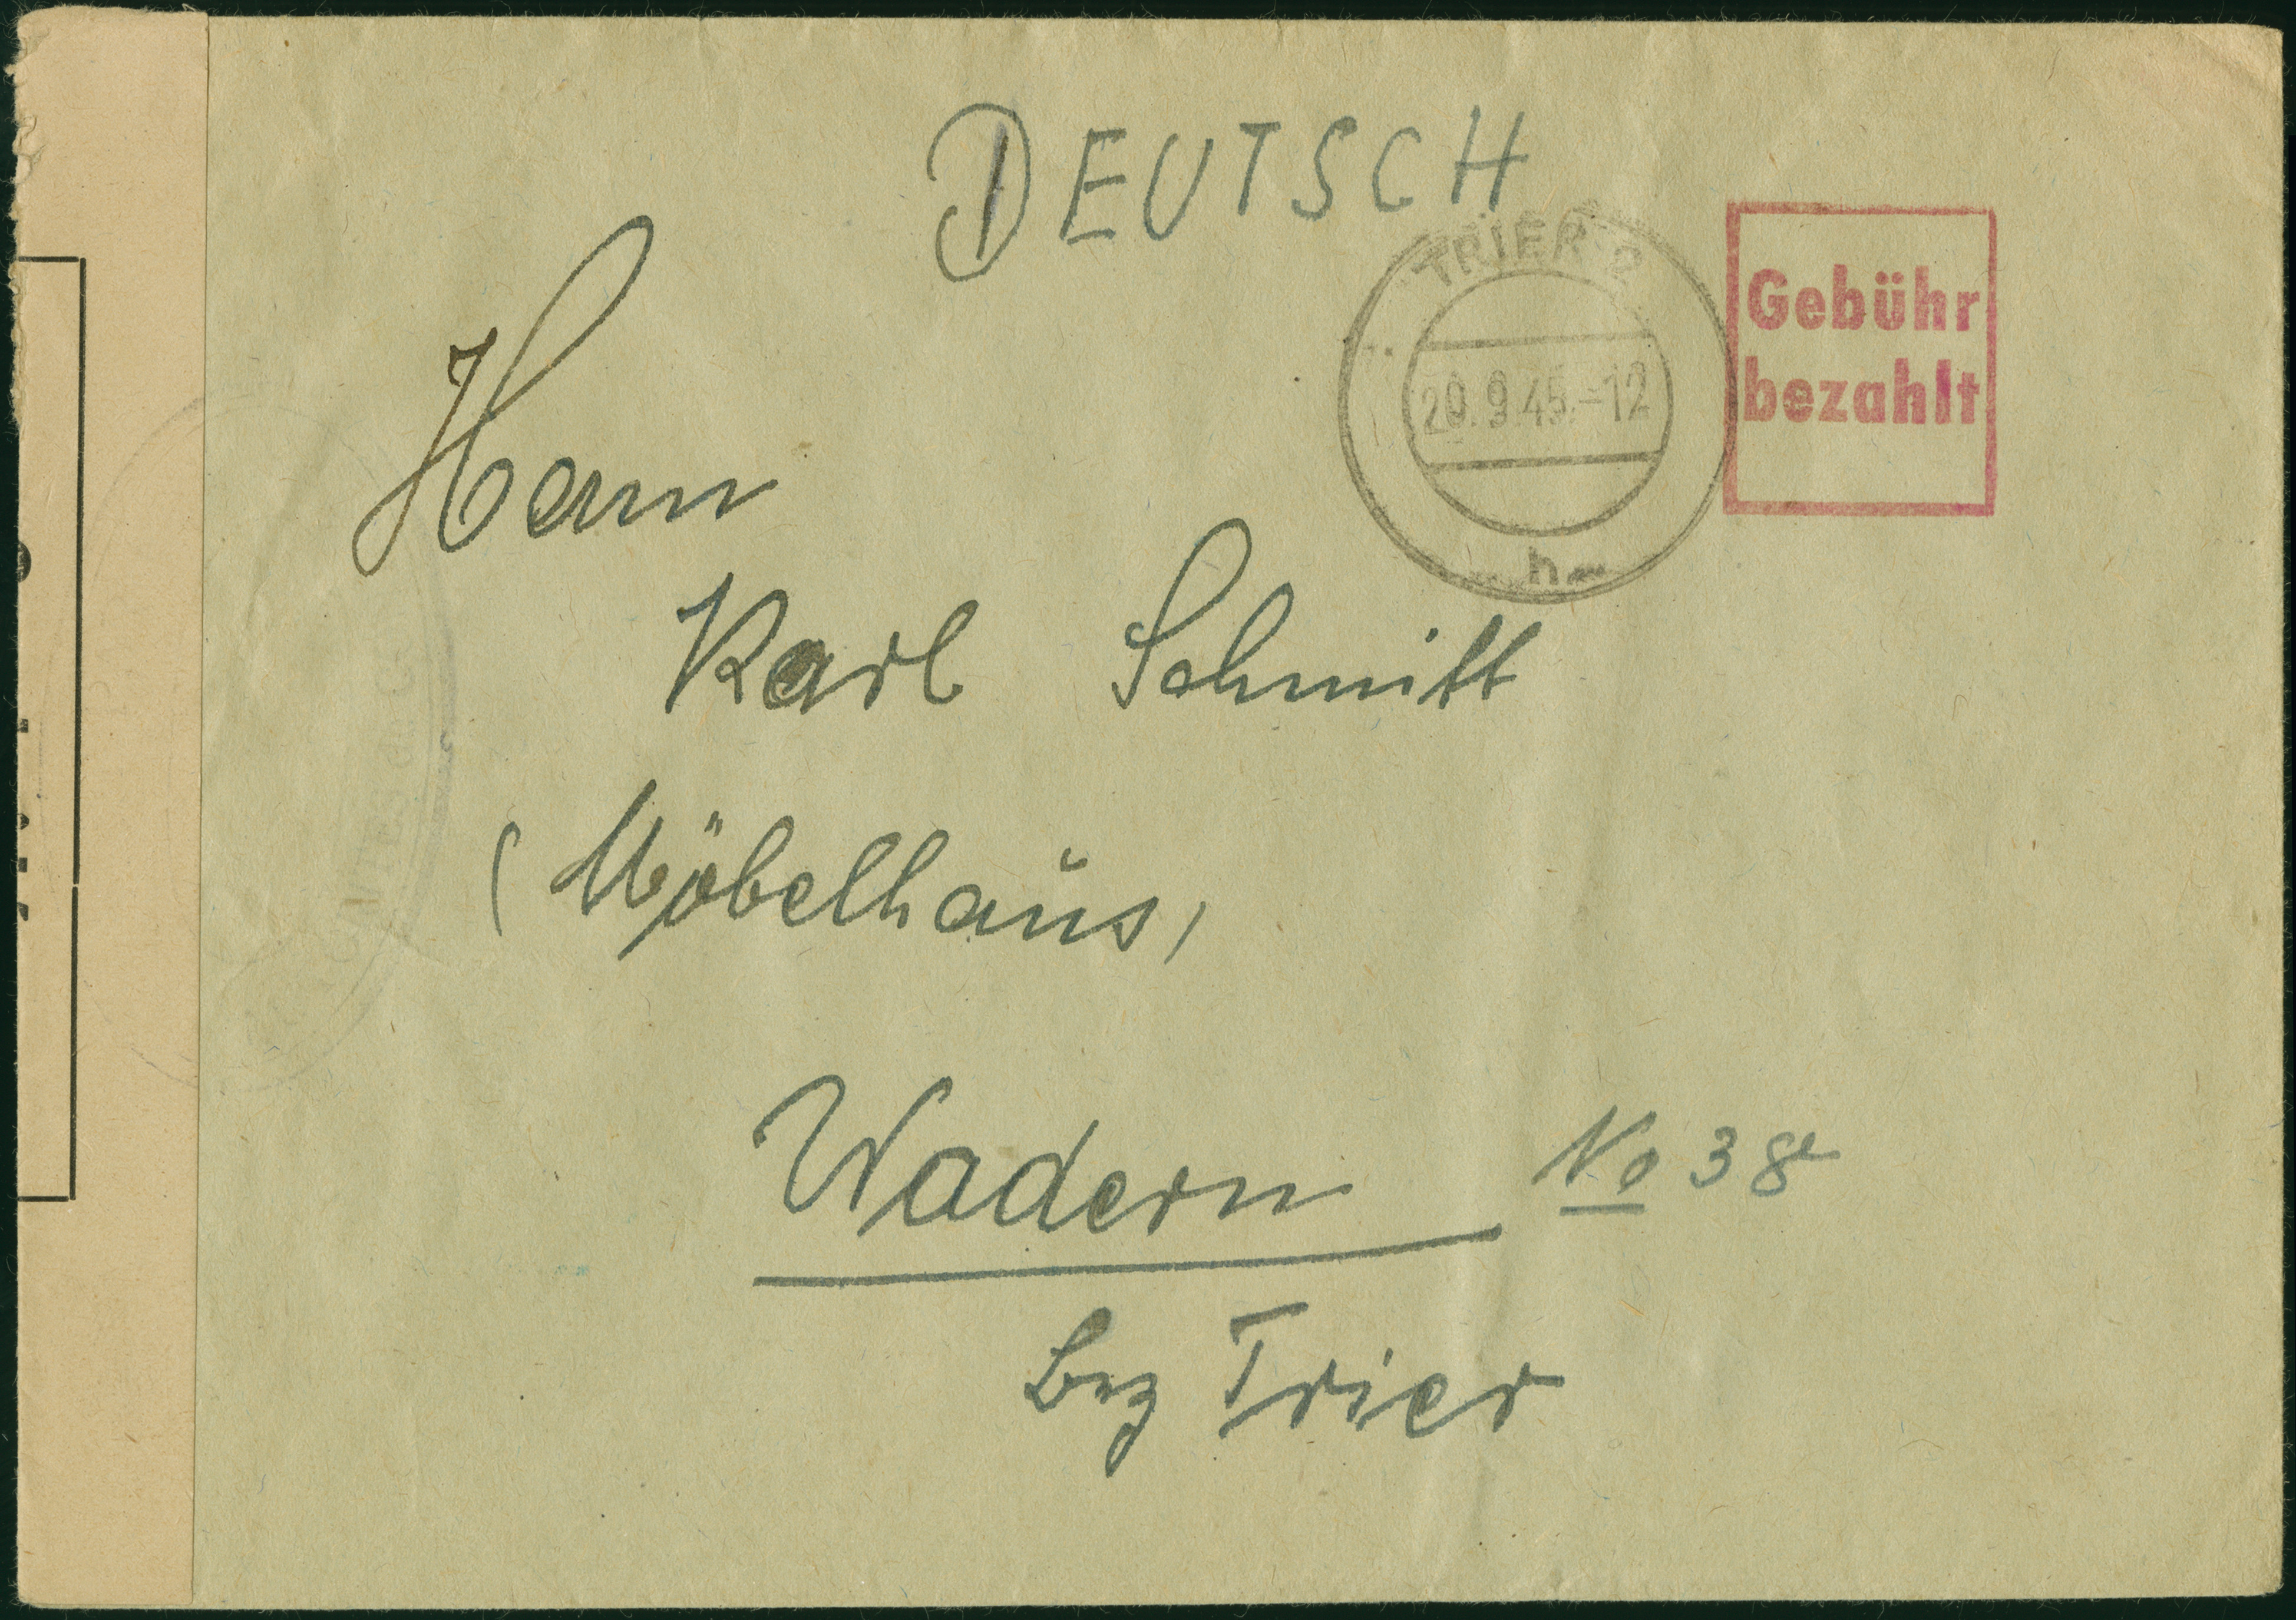 DEUTSCH
TRIER 2
20.9.45.-12
h
Gebühr
bezahlt
Herrn
Karl Schmitt
(Möbelhaus)
Wadern No 38
Bez Trier